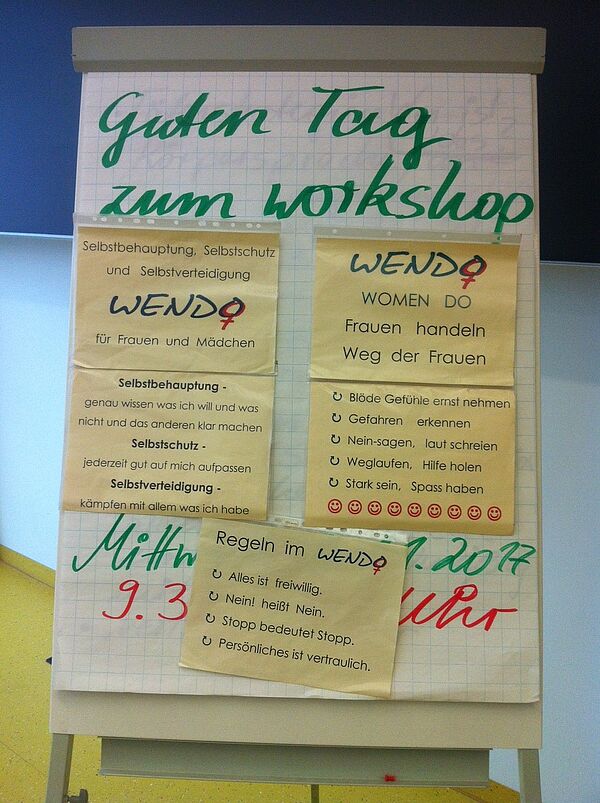 Guten Tag
zum workshop
Selbstbehauptung, Selbstschutz
und Selbstverteidigung
WENDO
für Frauen und Mädchen
Selbstbehauptung -
genau wissen was ich will und was
nicht und das anderen klar machen
Selbstschutz -
jederzeit gut auf mich aufpassen
Selbstverteidigung -
kämpfen mit allem was ich habe
WENDO
WOMEN DO
Frauen handeln
Weg der Frauen
Blöde Gefühle ernst nehmen
Gefahren erkennen
Nein-sagen, laut schreien
Weglaufen, Hilfe holen
Stark sein, Spass haben
1.2017
9.3
Uhr
Regeln im WENDO
Alles ist freiwillig.
Nein! heißt Nein.
Stopp bedeutet Stopp.
Persönliches ist vertraulich.